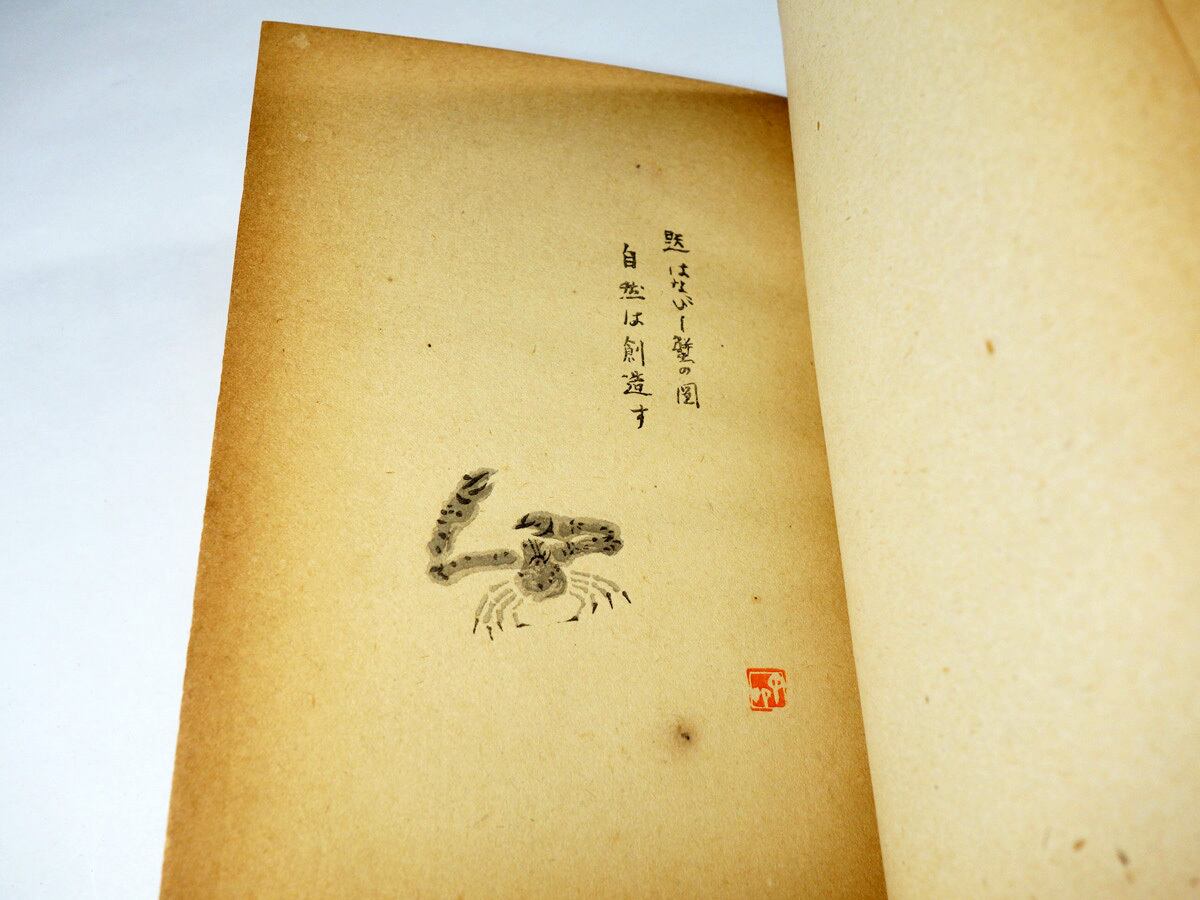 はなびし蟹の圖
自然は創造す